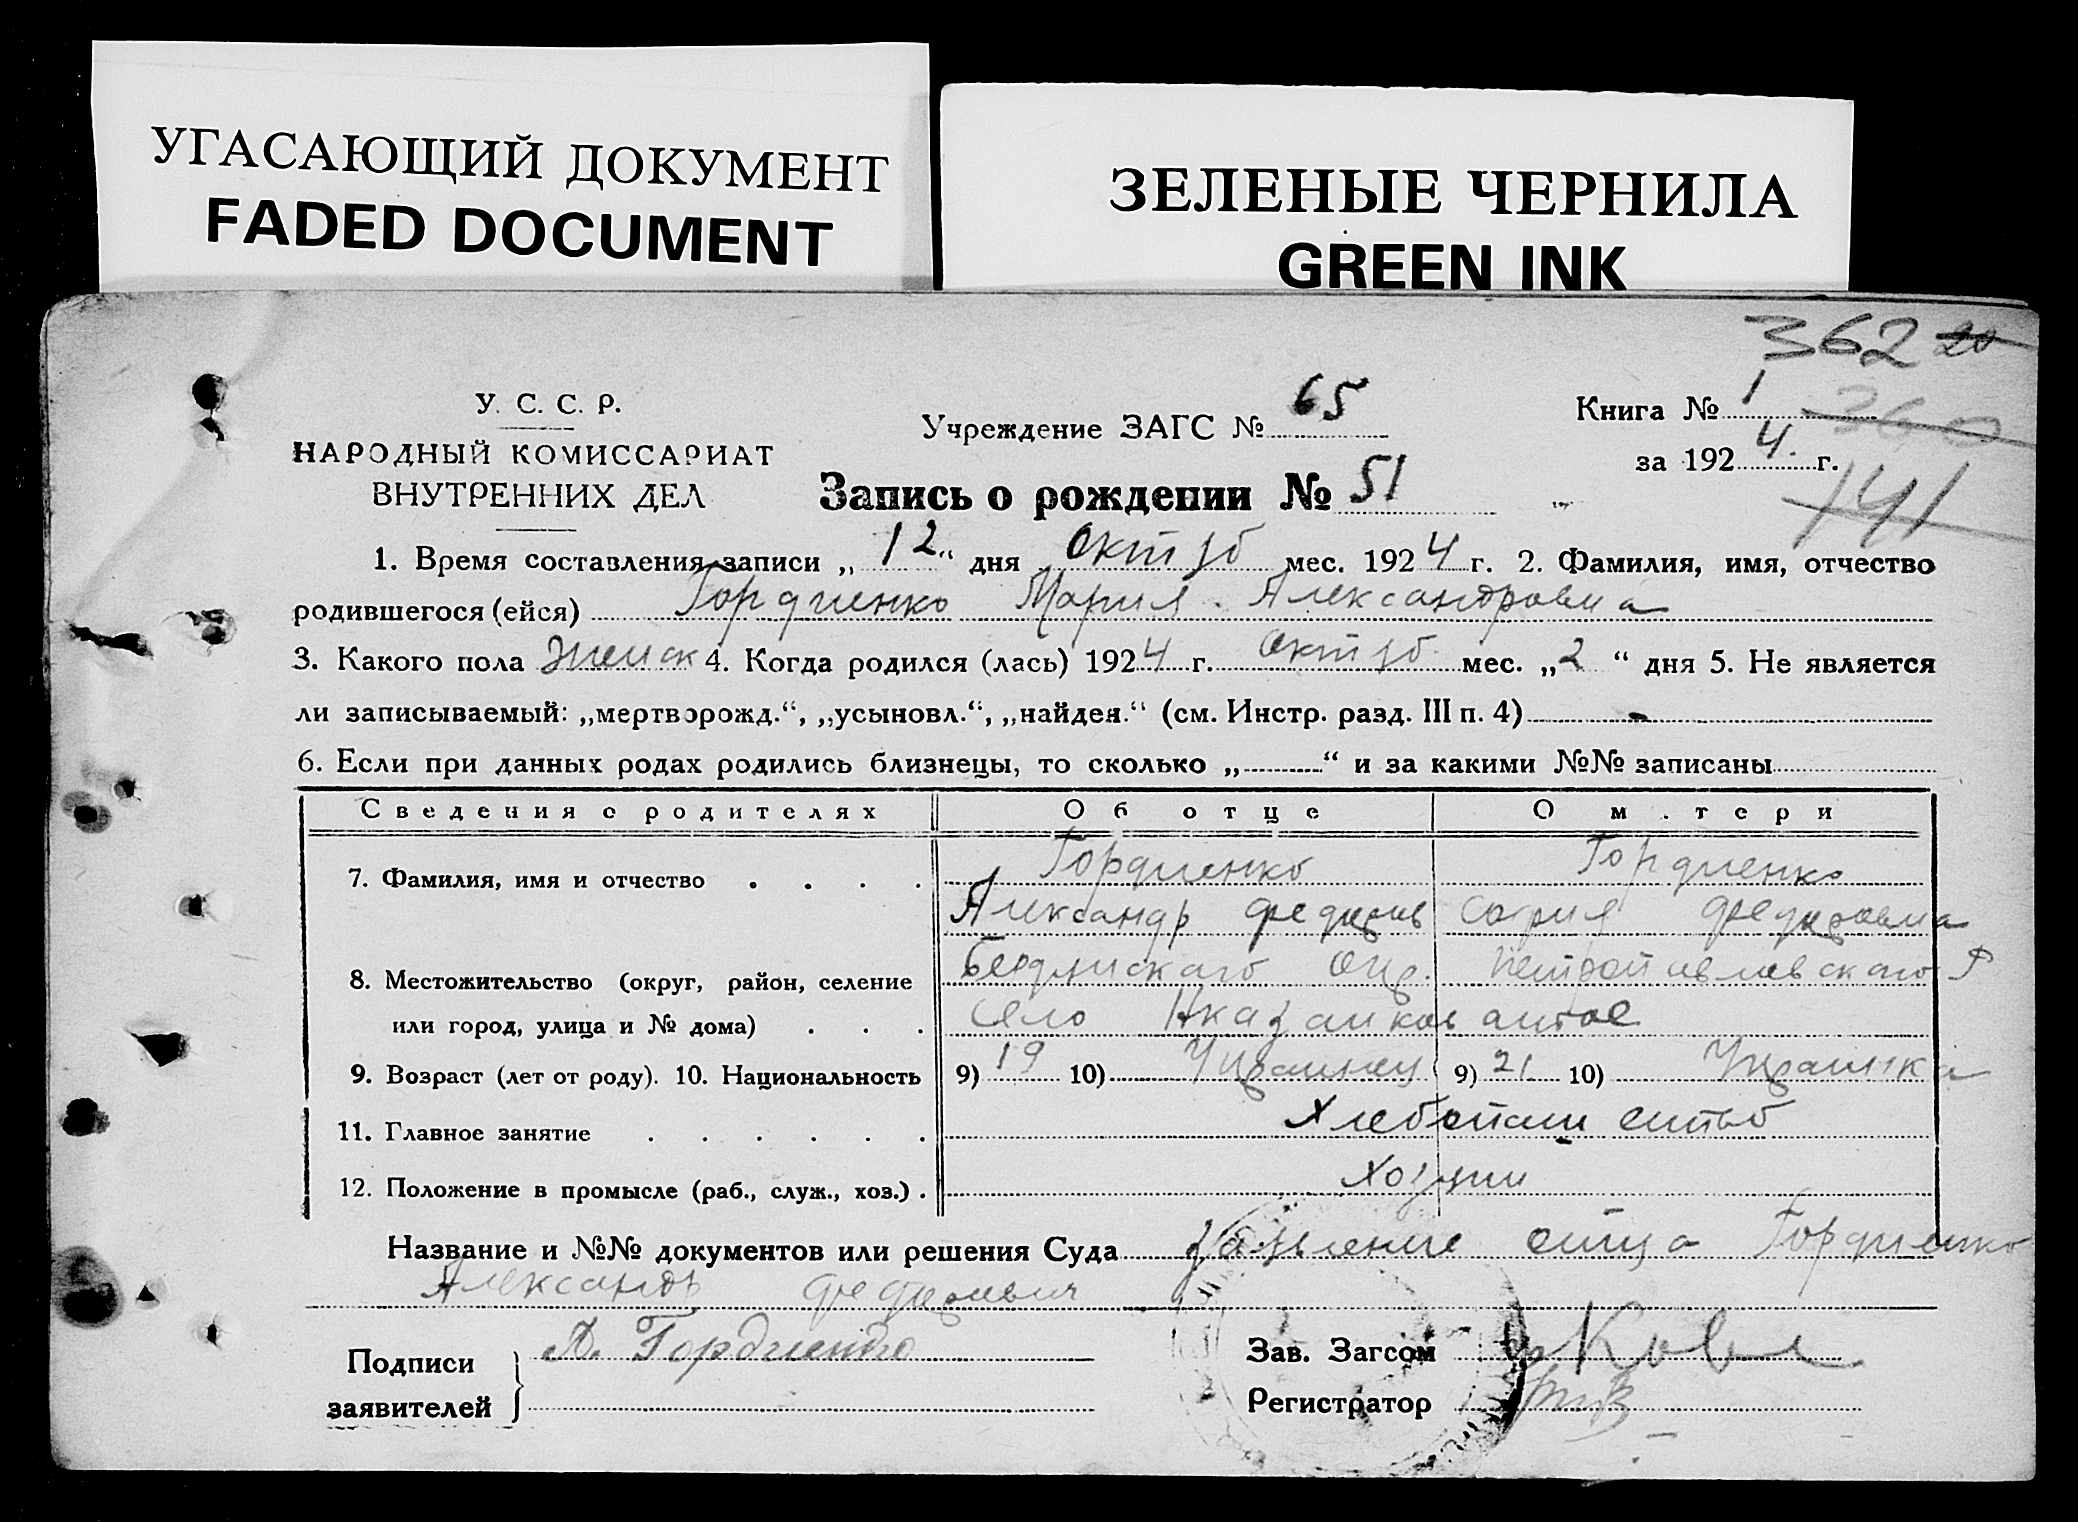 УГАСАЮЩИЙ ДОКУМЕНТ
FADED DOCUMENT
ЗЕЛЕНЫЕ ЧЕРНИЛА
GREEN INK
362 20
360
141
У. С. С. Р.
НАРОДНЫЙ КОМИССАРИАТ
ВНУТРЕННИХ ДЕЛ
Учреждение ЗАГС № 65
Книга № 1
за 1924 г.
Запись о рождении № 51
1. Время составления записи „12“ дня Октяб мес. 1924 г. 2. Фамилия, имя, отчество
родившегося (ейся) Гордиенко Мария Александровна
3. Какого пола женск 4. Когда родился (лась) 1924 г. октяб мес. „2“ дня 5. Не является
ли записываемый: „мертворожд.“, „усыновл.“, „найден.“ (см. Инстр. разд. III п. 4) -
6. Если при данных родах родились близнецы, то сколько „ “ и за какими №№ записаны
Сведения о родителях Об отце О м.тери
7. Фамилия, имя и отчество Гордиенко Гордиенко
Александр Федоров София Федоровна
8. Местожительство (округ, район, селение Бердянского Окр. Петропавловского Р
или город, улица и № дома) село
9. Возраст (лет от роду). 10. Национальность 9) 19 10) Украинец 9) 21 10) Украинка
11. Главное занятие Хлебопашество
12. Положение в промысле (раб., служ., хоз.) Хозяин
Название и №№ документов или решения Суда заявление отца Гордиенко
Александр Федорович
Подписи заявителей А. Гордиенко
Зав. Загсом
Регистратор